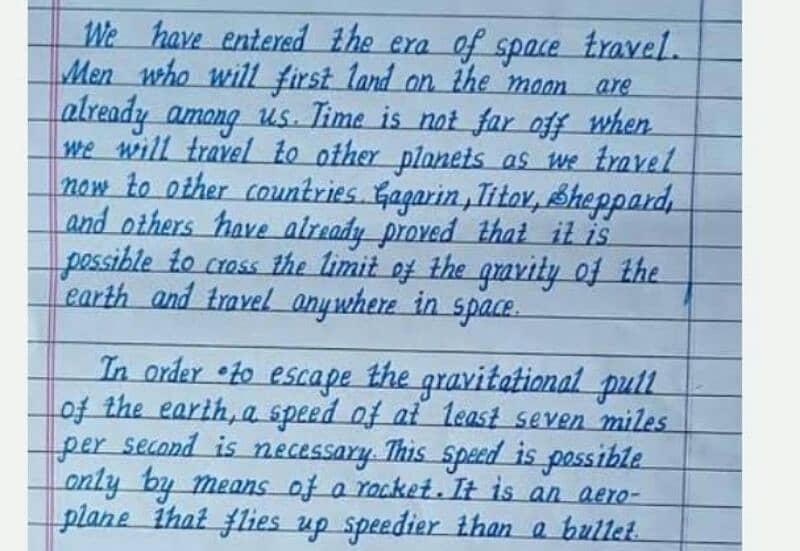 We have entered the era of space travel.
Men who will first land on the moon are
already among us. Time is not far off when
we will travel to other planets as we travel
now to other countries. Gagarin, Titov, Sheppard,
and others have already proved that it is
possible to cross the limit of the gravity of the
earth and travel anywhere in space.
In order to escape the gravitational pull
of the earth, a speed of at least seven miles
per second is necessary. This speed is possible
only by means of a rocket. It is an aero-
plane that flies up speedier than a bullet.